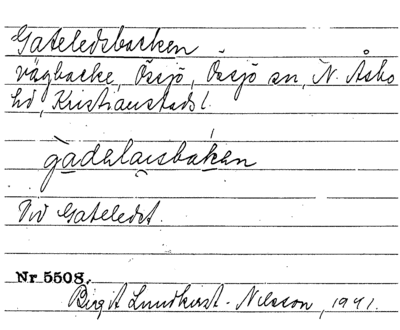 Gateledsbacken
vägbacke, Össjö, Össjö sn, N. Åsbo
hd, Kristianstads l.
gadalaisbakan
Vid Gateledet.
Nr 5508.
Birgit Lundkvist-Nilsson, 1941.